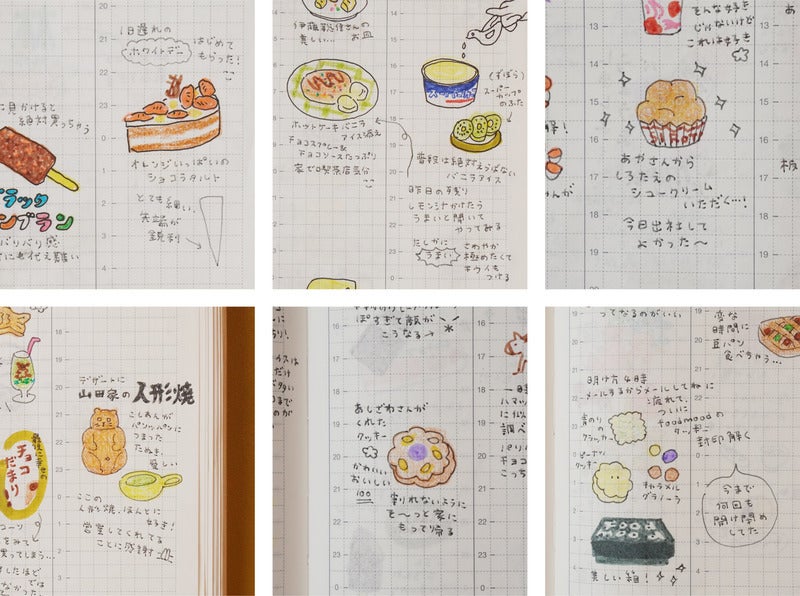 1日遅れの
ホワイトデー
はじめて
もらった!
に見かけると
絶対買っちゃう
オレンジいっぱいの
ショコラタルト
とても細い、
先端が
鋭利
ブラック
モンブラン
バリバリ感
伊藤
美しい… お皿
ホットケーキバニラ
アイス添え
チョコスプレー&
チョコソースたっぷり
家で喫茶店気分
(ずぼら)
スーパー
カップの
ふた
普段は絶対えらばない
バニラアイス
昨日の残り
レモン汁かけたら
うまいと聞いて
やってみる
たしかに
うまい
さわやか
極めたくて
キウイも
つける
そんな好き
じゃないけど
これは好き
あやさんから
しろたえの
シュークリーム
いただく…!
今日出社して
よかった〜
デザートに
山田家の人形焼
こしあんが
パンパンに
つまった
たぬき、
愛しい
最後に幸せの
チョコ
だまり
ここの
人形焼、ほんとに
好き!
営業してくれてる
ことに感謝
をみて
買ってしまう…
ぽすぎて顔が
こうなる→
あしざわさんが
くれた
クッキー
かわいい
おいしい
100
割れないように
そ〜っと家に
もって帰る
ってなるのがいい
変な
時間に
豆パン
食べちゃう…
明け方4時
メールするからメールしてねに
疲れて、
ついに
foodmoodの
クッキー
封印解く
青のり
クラッカー
ピーナッツ
クッキー
キャラメル
グラノーラ
今まで
何回も
開け閉め
してた
美しい箱!